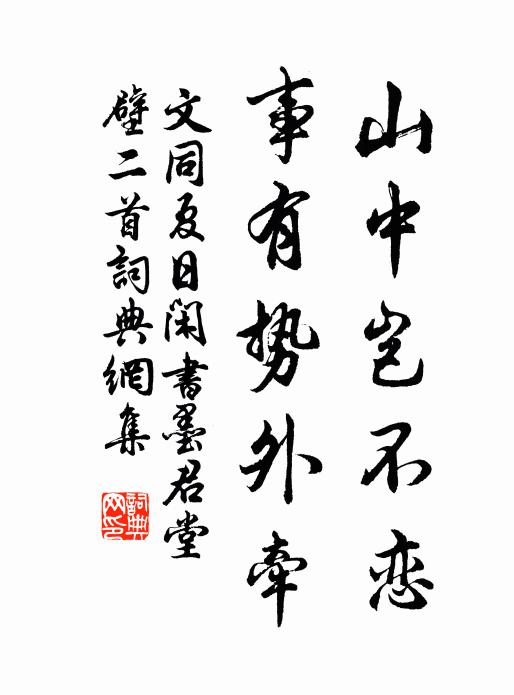 山中岂不恋
事有势外牵
文同夏日闲書墨君堂
壁二首詞典網集
詞典網印